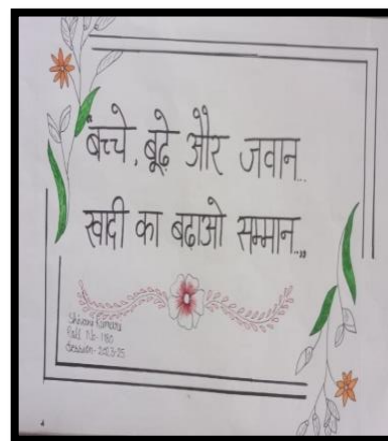 "बच्चे, बूढ़े और जवान..
खादी का बढ़ाओ सम्मान..,,
Shivani Kumari
Roll No-1180
Session-2023-25